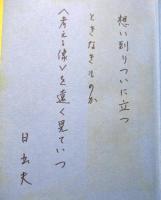 想い割りついに立つ
ときなきものか
〈考える像〉を遠く見ていつ
日出夫